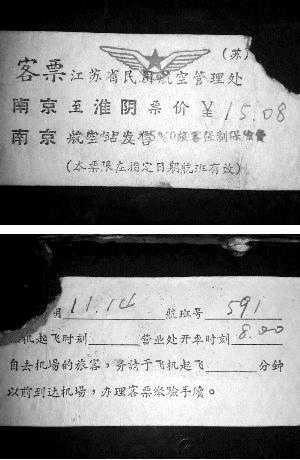 (苏)
客票 江苏省民用航空管理处
南京至淮阴票价￥15.08
南京 航空站发售 %0旅客强制保险費
(本票限在指定日期航班有效)
月 11.14 航班号 591
机起飞时刻 营业处开车时刻 8.00
自去机场的旅客，务請于飞机起飞 分钟
以前到达机場，办理客票验手續。